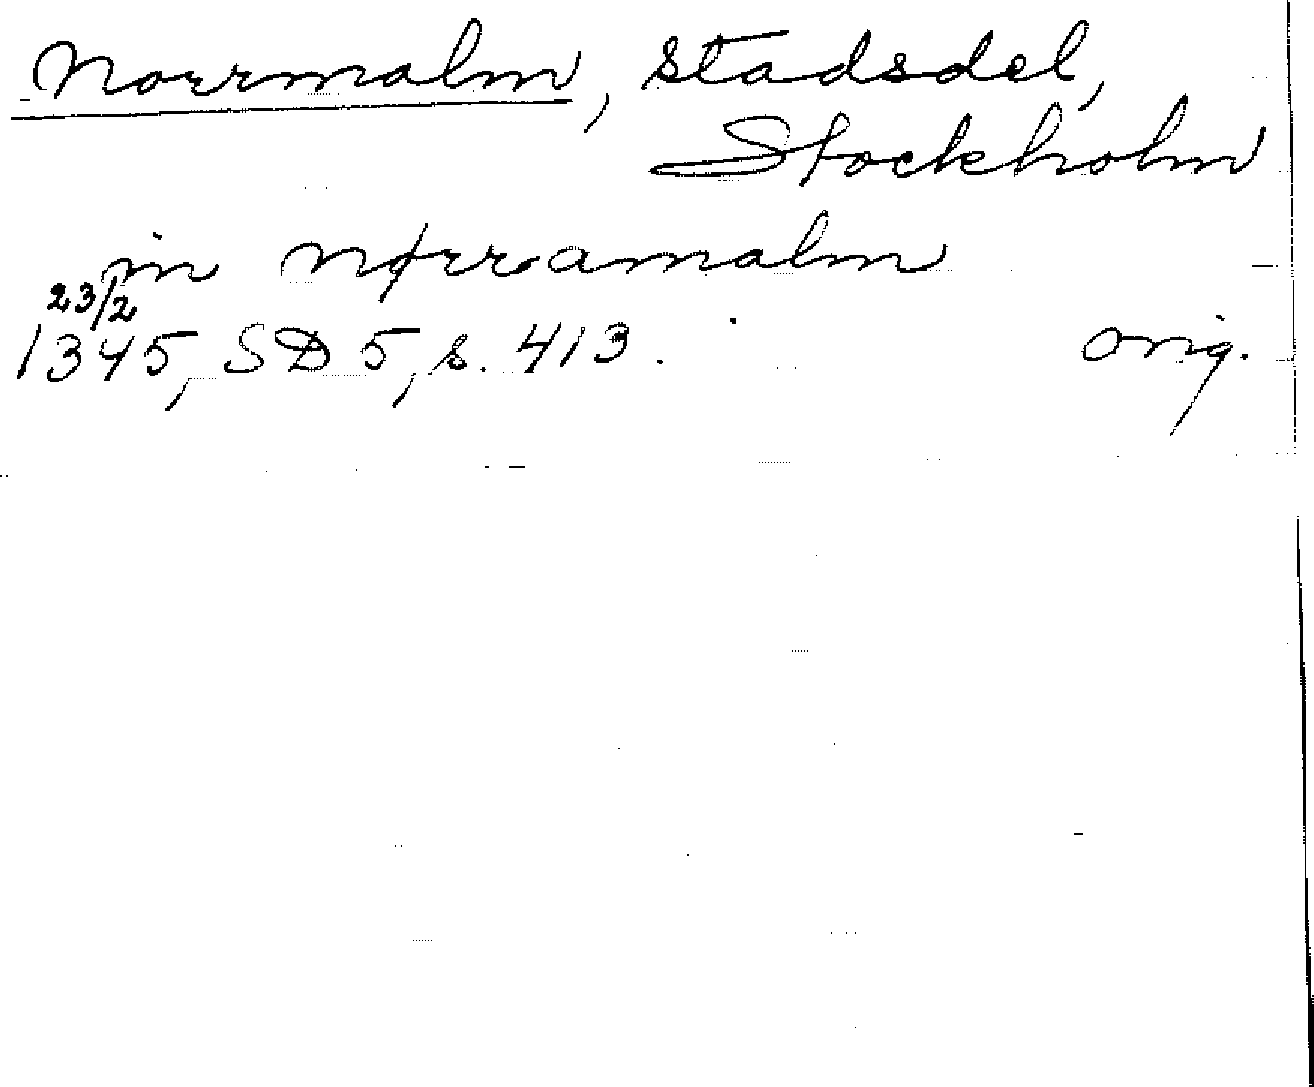 Norrmalm, stadsdel,
Stockholm
in nørramalm
23/2
1345, SD 5, s. 413. orig.